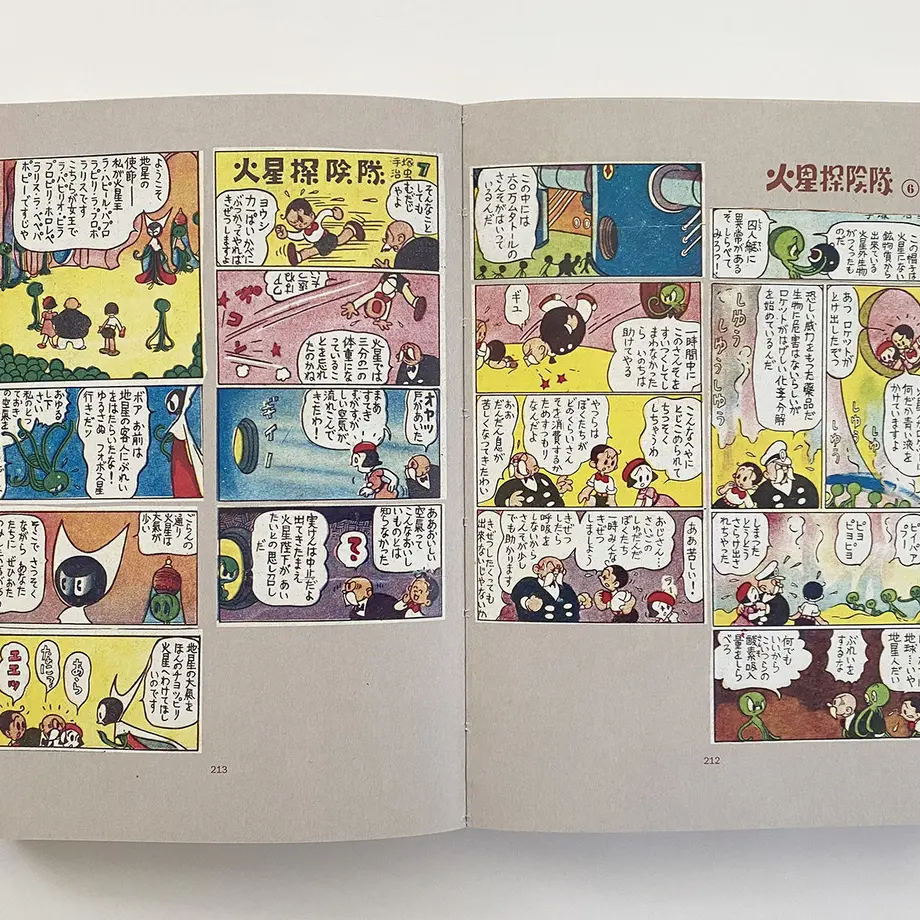 火星探険隊
⑥
この帽子は
火星にない
鉱物質から
出来ている
火星外生物
がつくったも
のだ
囚人艇に
異常がある
しらべて
みろっ!
あっ ロケットが
とけ出したぞっ
恐しい威力をもった薬品だ
生物に危害はないらしいが
ロケットがはげしい化学分解
を始めているんだ
しゅう
しゅうしゅう
しゅう
何だか青い液を
かけていますよ
しゅう
しゅう
ピヨ
ピヨピヨ
しまった
とうとう
さらけ出さ
れちゃった
地球…いや
地星人だい
ぶれいを
するな
何でも
いいから
こいつらの
酸素吸入
量をしら
べろ
この中には
六〇万ムタトールの
さんそがはいって
いるんだ
一時間中に
このさんそを
すいつくして
しまわなかった
ら いのちは
助けてやる
ギュ
こんなへやに
とじこめられて
ちっそく
しちゃうわ
やつらは
ぼくたちが
どのくらいさん
そを消費するか
ためすつもり
なんだよ
おお だんだん息が
苦しくなってきたわい
ああ苦しい!
おじさん
さいごの
ちえだ
ぼくたち
一時みんな
きぜつ
しましょう
きぜつ
したら
呼吸を
しないから
少しの空気
でも助かります
きぜつしたくっても
出来ないじゃないか
212
火星探険隊
手塚
治虫
7
そんなこと
しても
むだじゃ
よ
ヨウシ
カ一ぱいかべに
ぶつかってやれば
きぜつしますよ
火星では
三分の一の
体重にな
っているこ
とを忘れ
たのかね
オヤッ
戸があいた
まあ
すがすが
しい空気が
流れこん
できたわ!
ギ
イ
ー
ああおいしい
空気って
こんなおい
しいものとは
知らなかった
?
実けんは中止だよ
出てきたまえ
火星陛下があい
たいとの思し召し
だ
ようこそ
地星の
使節――
私が火星王
ラ・ハピール・パプロ
ラピリ・ラ・プロポ
ラリスです
こちらが女王で
ラ・ハピリ・プロピラ
プロピリ・ホロレペ
ラリス・ラ・ペペパ
ポピーですじゃ
ボア お前は
はたらいたな!
地星の客人にぶれい
ゆるさぬ フォボス星へ
行きだッ
おゆる
し下
さい
ごらんの
通り
火星は
大氣が
少い
そこで さっそく
ながら あなた
たちに ぜひあた
地星の大氣を
ほんのチョッピリ
火星へわけてほし
いのです
あら
エエッ
213